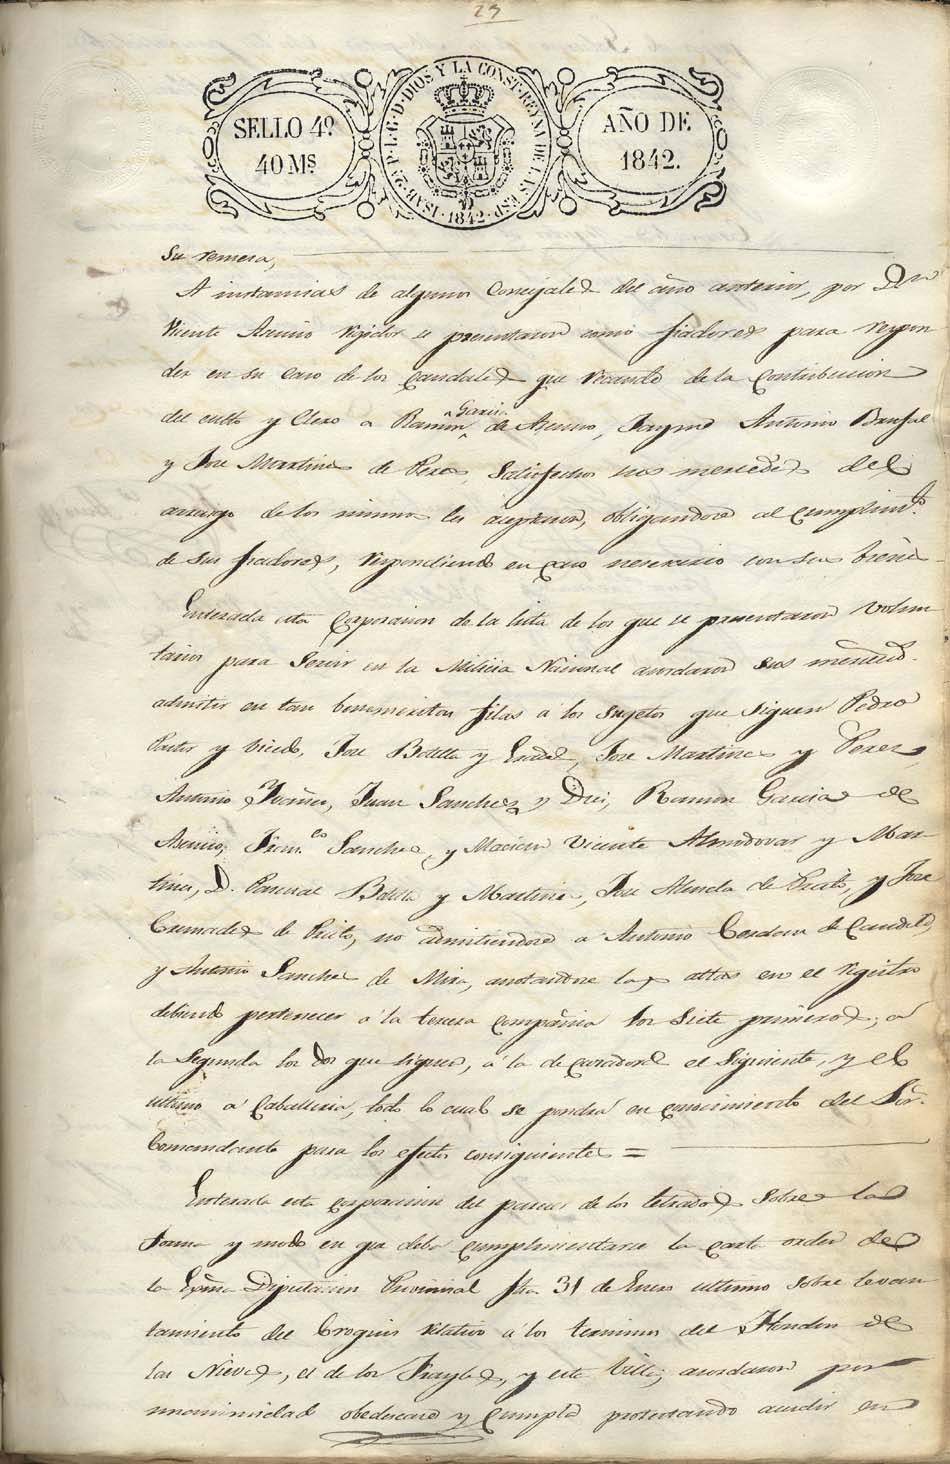 23
SELLO 4º.
40 Ms.
ISAB. 2ª P. L. G. D. DIOS Y LA CONST. REYNA DE LAS ESP.
1842
AÑO DE
1842.
Su remesa,
A instancias de algunos Concejales del año anterior, por Dn
Vicente Asencio regidor se presentaron como fiadores para respon
der en su caso de los caudales que recaude de la Contribucion
del culto y Clero a Ramon Garcia de Asencio, Jayme Antonio Brufal
y Jose Martines de Peres, Satisfechos sus mercedes del
arraigo de los mismos les aceptaron, obligandose al cumplimto.
de sus fiadores, respondiendo en caso nesesario con sus bienes
Enterada esta Corporacion de la lista de los que se presentaron volun
tarios para Servir en la Milicia Nacional acordaron sus merceds.
admitir en tan benemeritas filas a los Sugetos que siguen Pedro
Pastor y Vicedo, Jose Botella y Gradel, Jose Martines y Peres,
Antonio Juañes, Juan Sanches y Diez, Ramon Garcia de
Asencio, Franco. Sanches y Macian Vicente Almodovar y Mar-
tines, D. Pascual Botella y Martines, Jose Abuela de Prieto, y Jose
Cremades de Prieto, no admitiendose a Antonio Cerdan de Candela,
y Antonio Sanches de Mira, anotandose las altas en el registro
debiendo pertenecer á la tercera compañia los Siete primeros, á
la Segunda los dos que siguen, á la de cazadores el Siguiente, y el
ultimo a Caballeria, todo lo cual se pondrá en conocimiento del Sor.
Comandante para los efectos consiguientes =
Enterada esta corporacion del parecer de los letrados sobre la
forma y modo en que debe cumplimentarse la carta orden de
la Exma Diputacion Provincial fha. 31 de Enero ultimo sobre levan
tamiento del Croquis relativo á los terminos del Hondon de
las Nieves, el de los Frayles, y esta Villa; acordaron por
unanimidad obedescase y Cumpla protestando acudir en